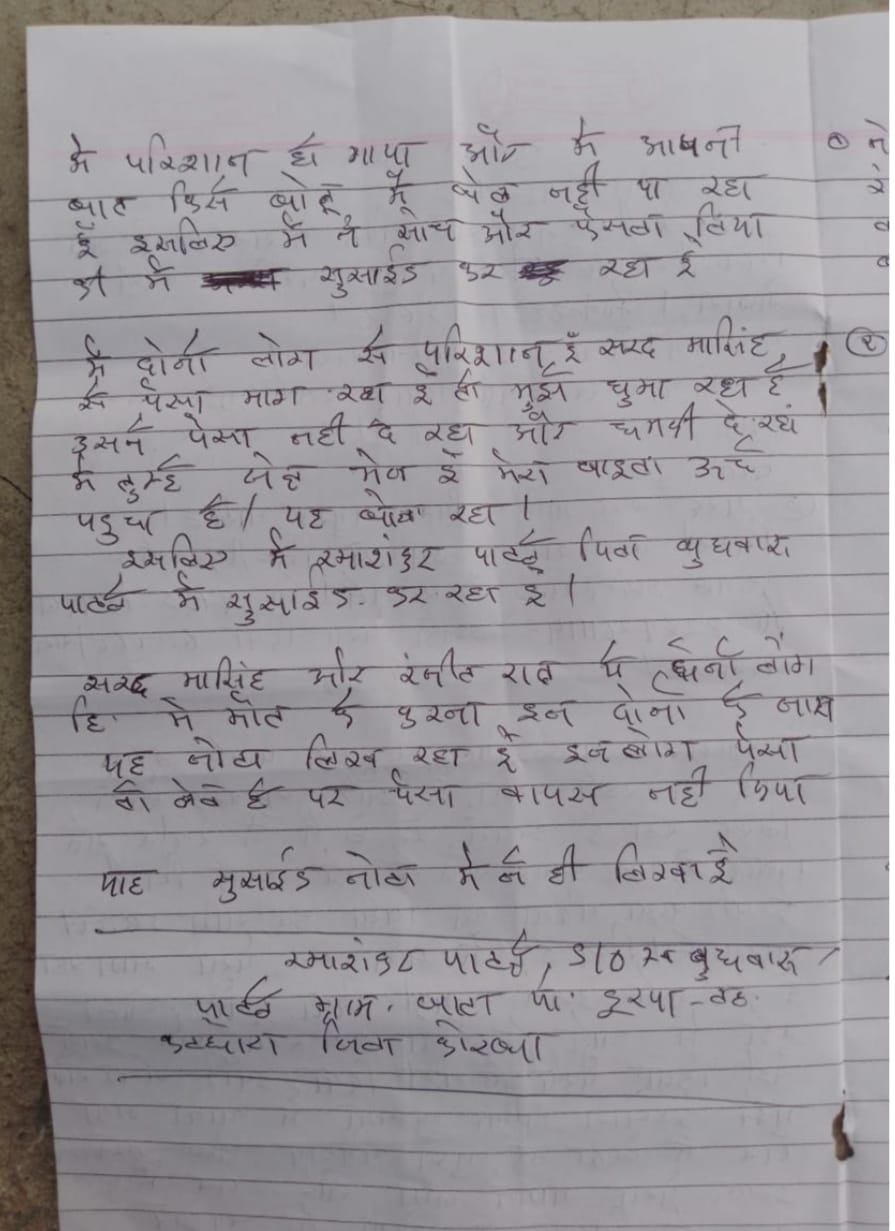 मे परिशान हो गाया और मे आपनी
बात किसे बोलू मै बोल नही पा रहा
हूँ इसलिए मै ने सोच और फेसला लिया
की मै सुसाईड कर रहा हूँ
मै दोनो लोग से परिशान हूँ सरद मासिंह
से पैसा माग रहा हूँ तो मुझे घुमा रहा है
उसने पेसा नही दे रहा और धमकी दे रहा
मै तुम्हे जेल भेज
पहुचा है / यह बोल रहा /
इसलिए मै रमाशंकर पाटले पिता बुधवारू
पाटले मै सुसाईड कर रहा हूँ /
सरद मासिंह और रंजीत रात्रे ये दोनो लोग
मे मौत के इन दोनो के नाम
यह नोट लिख रहा हूँ इन लोग पेसा
तो लेते है पर पैसा वापस नही किया
याह सुसाईड नोट मे ने ही लिखा है
रमाशंकर पाटले, S/O स्व बुधवारू
पाटले ग्राम.
कटघोरा जिला कोरब्बा
②